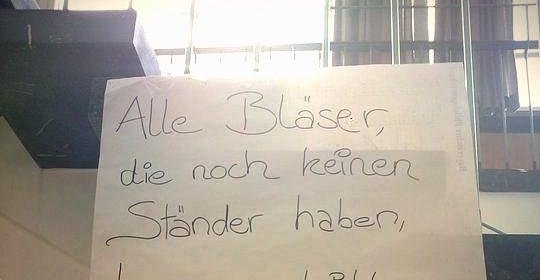 Alle Bläser,
die noch keinen
Ständer haben,